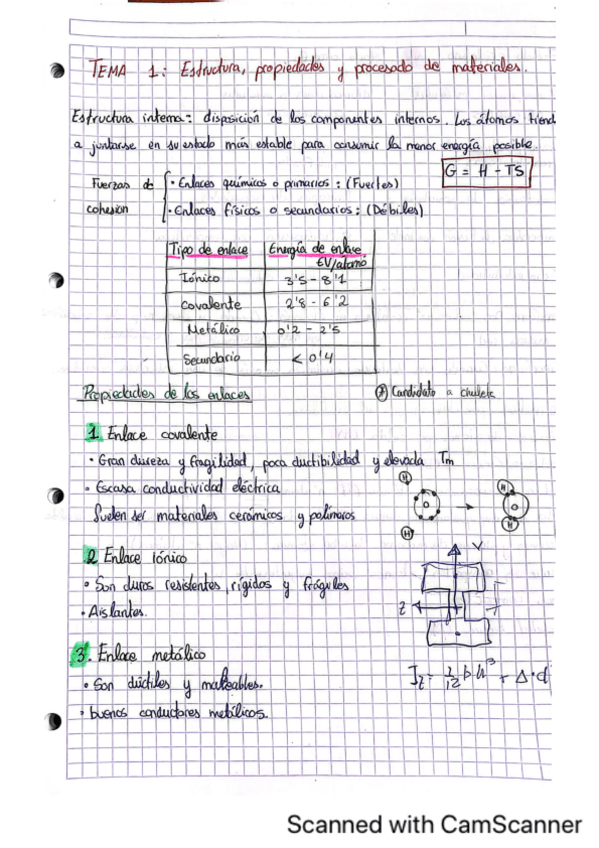 TEMA 1: Estructura, propiedades y procesado de materiales.
Estructura interna: disposición de los componentes internos. Los átomos tiend
a juntarse en su estado más estable para consumir la menor energía posible.
G = H - TS
Fuerzas de cohesión
· Enlaces químicos o primarios: (Fuertes)
· Enlaces físicos o secundarios: (Débiles)
Tipo de enlace Energía de enlace EV/átomo
Iónico 3'5 - 8'1
Covalente 2'8 - 6'2
Metálico 0'2 - 2'5
Secundario < 0'4
Propiedades de los enlaces
Candidato a chuleta
1. Enlace covalente
· Gran dureza y fragilidad, poca ductibilidad y elevada Tm
· Escasa conductividad eléctrica
Suelen ser materiales cerámicos y polímeros
H
H
O
H
O
H
2. Enlace iónico
· Son duros resistentes, rígidos y frágiles
· Aislantes.
Y
Z
3. Enlace metálico
· Son dúctiles y maleables.
· buenos conductores metálicos.
Iz = 1/12 b h³ + Δ·d
Scanned with CamScanner